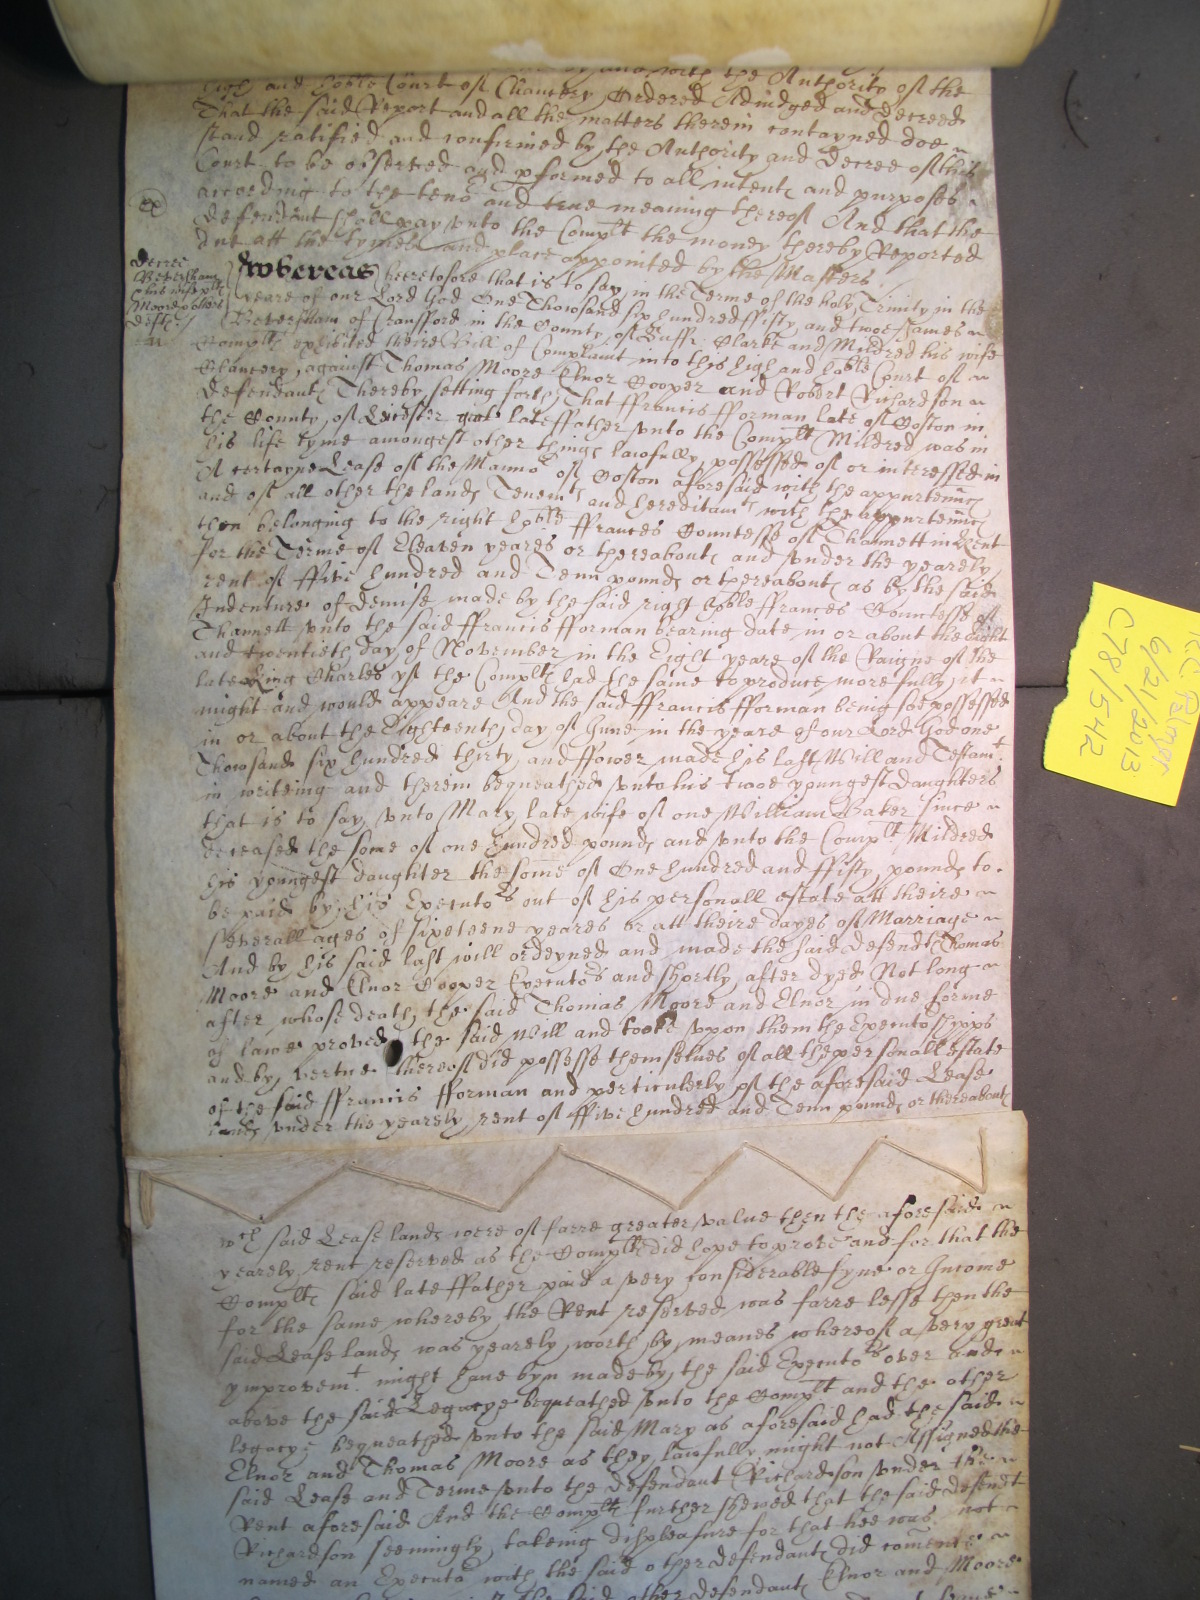 high and hoble Court of Chancery Ordered Adiudged and Decreed
That the said Report and all the matters therein contayned doe
stand ratified and confirmed by the Authority and Decree of this
Court to be observed and pformed to all intents and purposes
according to the teno and true meaning thereof And that the
defendant shall pay unto the Complt the money thereby Reported
due att the tyme and place appointed by the Masters
Decree
Beversham
& his wife plts
Moore & others
defts
Whereas heretofore that is to say in the Terme of the holy Trinity in the
yeare of our Lord God One Thousand six hundred fifty and twoe James
Beversham of Cransford in the County of Suff Clarke and Mildred his wife
Complts exhibited theire Bill of Complaint into this high and hoble Court of
Chancery against Thomas Moore Elnor Cooper and Robert Richardson
defendants Thereby setting forth That ffrancis fforman late of Goston in
the County of Leicester gent late ffather unto the Complt Mildred was in
his life tyme amongest other things lawfully possessed of or interressed in
A certayne Lease of the Manno of Goston aforesaid with the appurtenncs
and of all other the lands Tenemts and hereditamts with the appurtenncs
then belonging to the right hoble ffrances Countesse of Thannett in Kent
for the Terme of Eleaven yeares or thereabouts and under the yearely
rent of ffive hundred and Tenn pounds or thereabouts as by the said
Indenture of demise made by the said right hoble ffrances Countesse of
Thannett unto the said ffrancis fforman bearing date in or about the eight
and twentieth day of November in the Eight yeare of the Raigne of the
late King Charles yf the Complts had the same to produce more fully it
might and would appeare And the said ffrancis fforman being soe possessed
in or about the Eighteenth day of June in the yeare of our Lord God one
Thowsand six hundred thirty and ffower made his last Will and Testamt
in writeing and therein bequeathed unto his twoe youngest daughters
that is to say unto Mary late wife of one William Baker since
deceased the some of one hundred pounds and unto the Complt Mildred
his youngest daughter the some of One hundred and ffifty pounds to
be paid by his Executors out of his personall estate att theire
severall ages of sixeteene yeares or att theire dayes of Marriage
And by his said last will ordeyned and made the said defendts Thomas
Moore and Elnor Cooper Executors and shortly after dyed Not long
after whose death the said Thomas Moore and Elnor in due forme
of lawe proved the said Will and tooke upon them the Executoshipps
and by vertue thereof did possesse themselves of all the personall estate
of the said ffrancis fforman and perticulerly of the aforesaid Lease
lands under the yearely rent of ffive hundred and Tenn pounds or thereabouts
wch said Lease lands were of farre greater value then the aforesaid
yearely rent reserved as the Complts did hope to prove and for that the
Complts said late ffather paid a very considerable fyne or Income
for the same whereby the Rent reserved was farre lesse then the
said Lease lands was yearely worth by meanes whereof a very great
ymprovemt might have byn made by the said Executors over and
above the said Legacye bequeathed unto the Complt and the other
legacye bequeathed unto the said Mary as aforesaid had the said
Elnor and Thomas Moore as they lawfully might not Assigned the
said Lease and Terme unto the defendant Richardson under the
Rent aforesaid And the Complts further shewed that the said defendt
Richardson seemingly takeing displeasure for that hee was not
named an Executo with the said other defendants did comence
the said other defendants Elnor and Moore
6/21/2013
C78/542